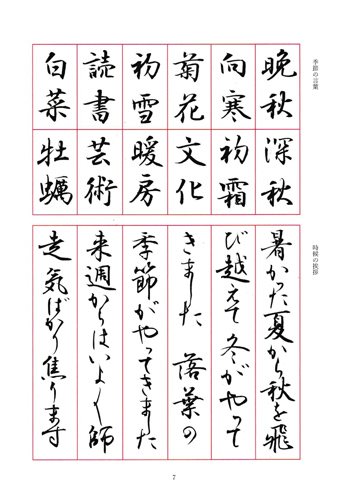 季節の言葉
晩秋 深秋
向寒 初霜
菊花 文化
初雪 暖房
読書 芸術
白菜 牡蠣
時候の挨拶
暑かった夏から秋を飛
び越えて冬がやって
きました 落葉の
季節がやってきました
来週からはいよ〱師
走気ばかり焦ります
7